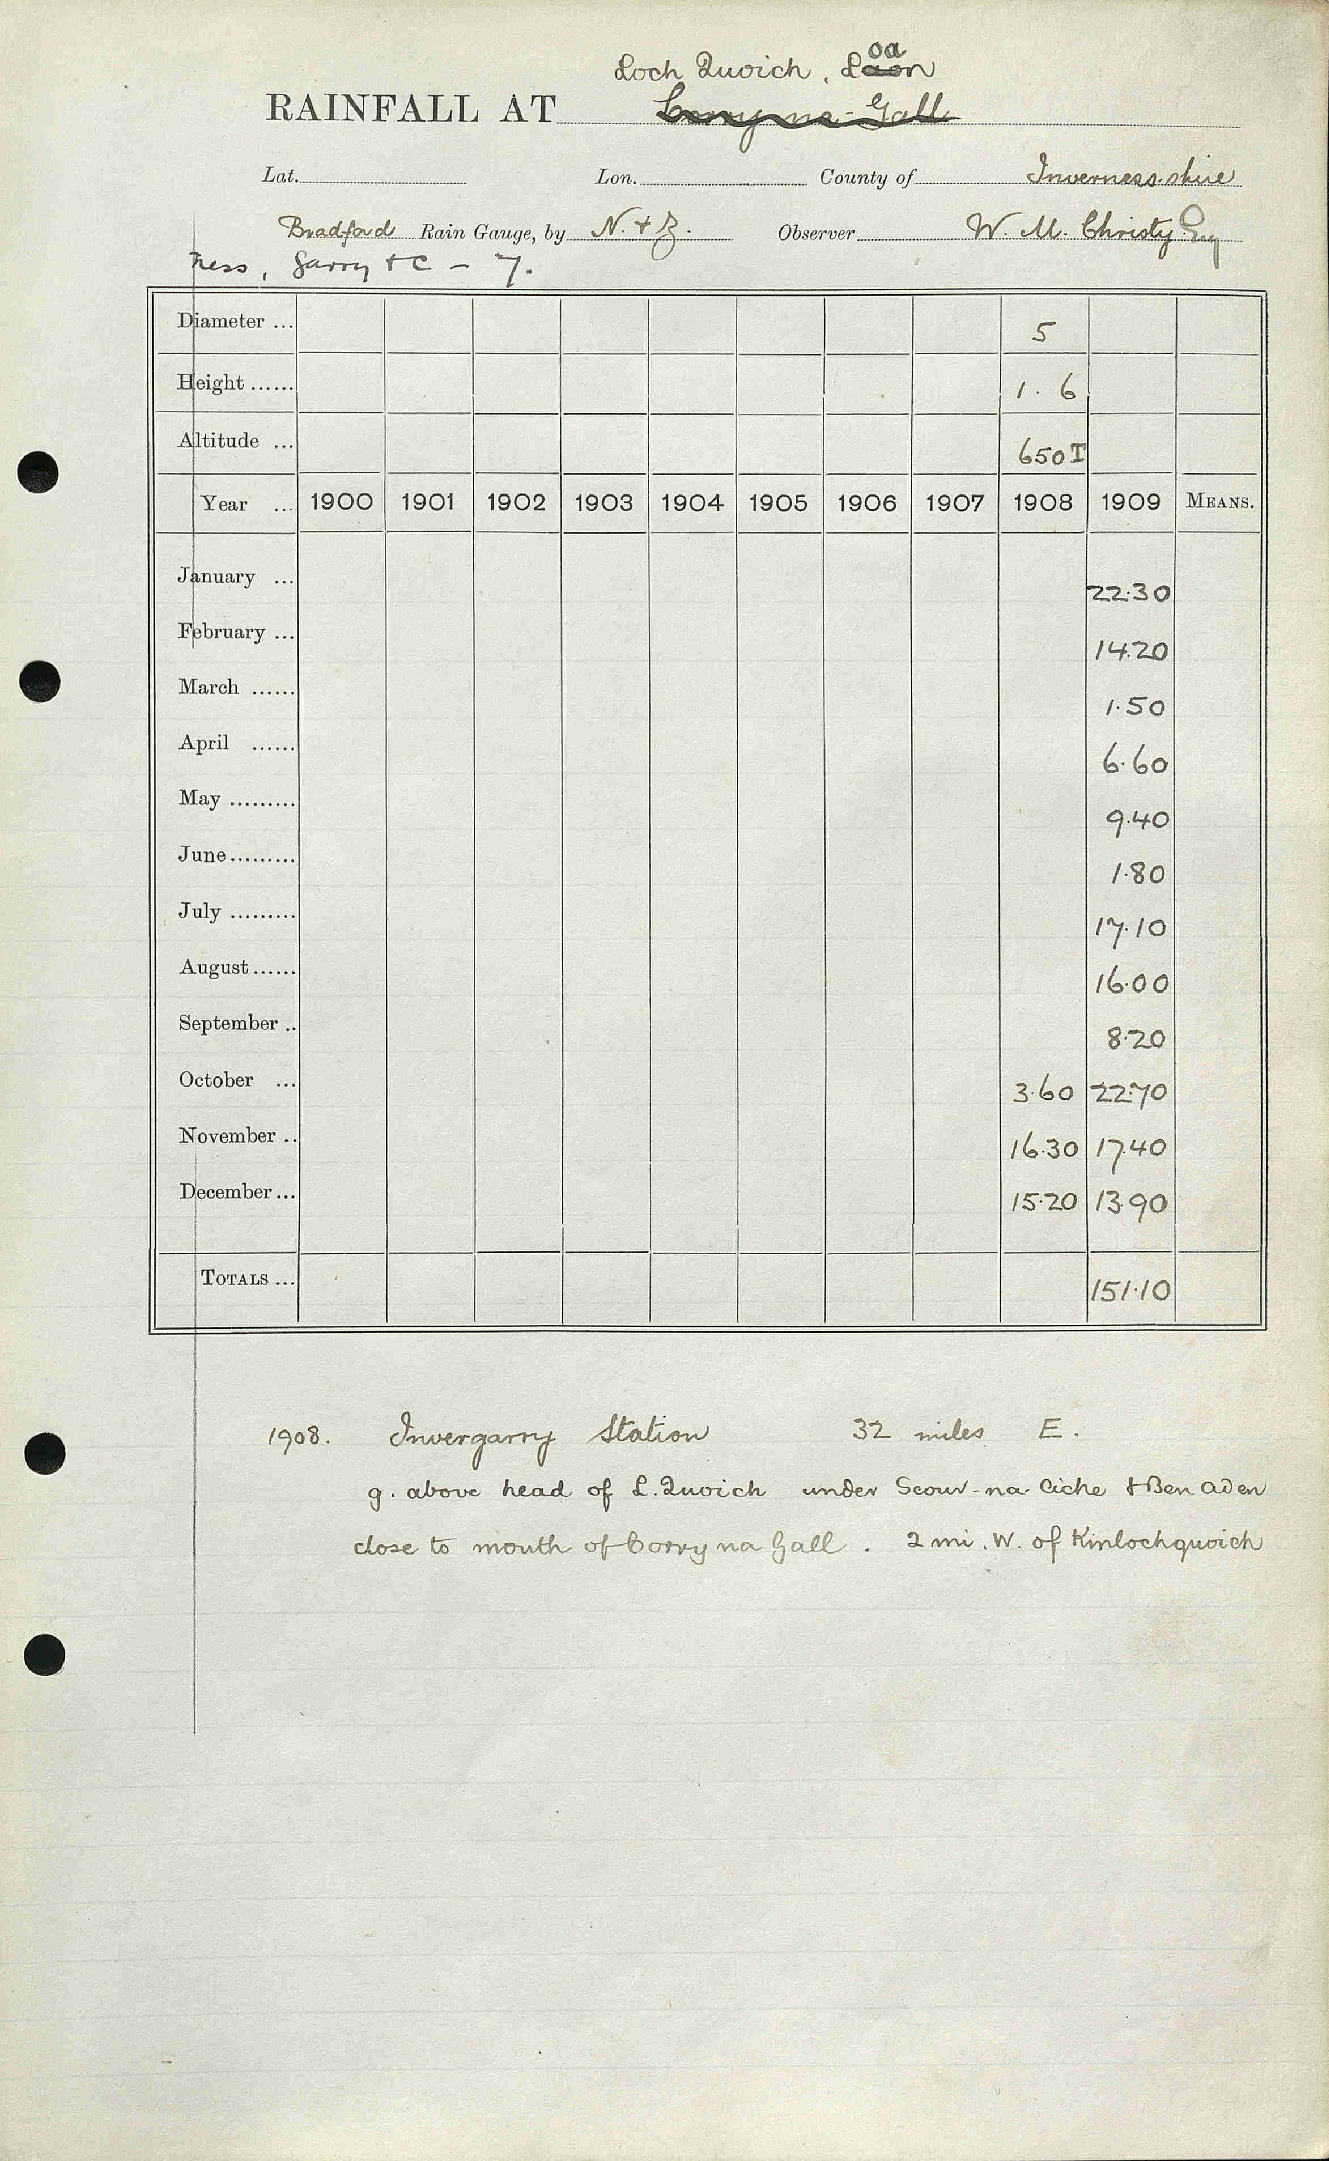 Loch Quoich, Loan
oa
RAINFALL AT Corry na - Gall
Lat. Lon. County of Inverness-shire
Bradford Rain Gauge, by N. & Z. Observer W. M. Christy Esq
Ness, Garry & C - 7.
Diameter ... 5
Height ...... 1. 6
Altitude ... 650 T
Year ... 1900 1901 1902 1903 1904 1905 1906 1907 1908 1909 MEANS.
January ... 22.30
February ... 14.20
March ...... 1.50
April ...... 6.60
May ......... 9.40
June ......... 1.80
July ......... 17.10
August ...... 16.00
September .. 8.20
October ... 3.60 22.70
November .. 16.30 17.40
December ... 15.20 13.90
TOTALS ... 151.10
1908. Invergarry Station 32 miles E.
g. above head of L. Quoich under Scour-na-Ciche & Ben Aden
close to mouth of Corry na Gall. 2 mi. W. of Kinlochquoich